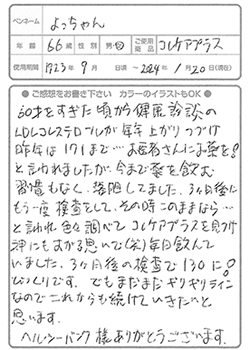 ペンネーム よっちゃん
年齢 66歳 性別 男・女 ご使用商品 コレケアプラス
使用期間 1923年9月 日頃 ～ 2024/1/20日(現在)
● ご感想をお書き下さい カラーのイラストもOK ●
60才をすぎた頃から健康診断の
LDLコレステロールが年々上がりつづけ
昨年は171まで…お医者さんにお薬を!
と言われましたが、今まで薬を飲む
習慣もなく、落胆してました。3ヶ月後に
もう一度検査をして、その時このままなら…
と言われ色々調べてコレケアプラスを見つけ
神にもすがる思いで(笑)毎日飲んで
いました。3ヶ月後の検査で130に!
びっくりです。でもまだまだギリギリライン
なのでこれからも続けていきたいと
思います。
ヘルシーバンク様ありがとうございます。